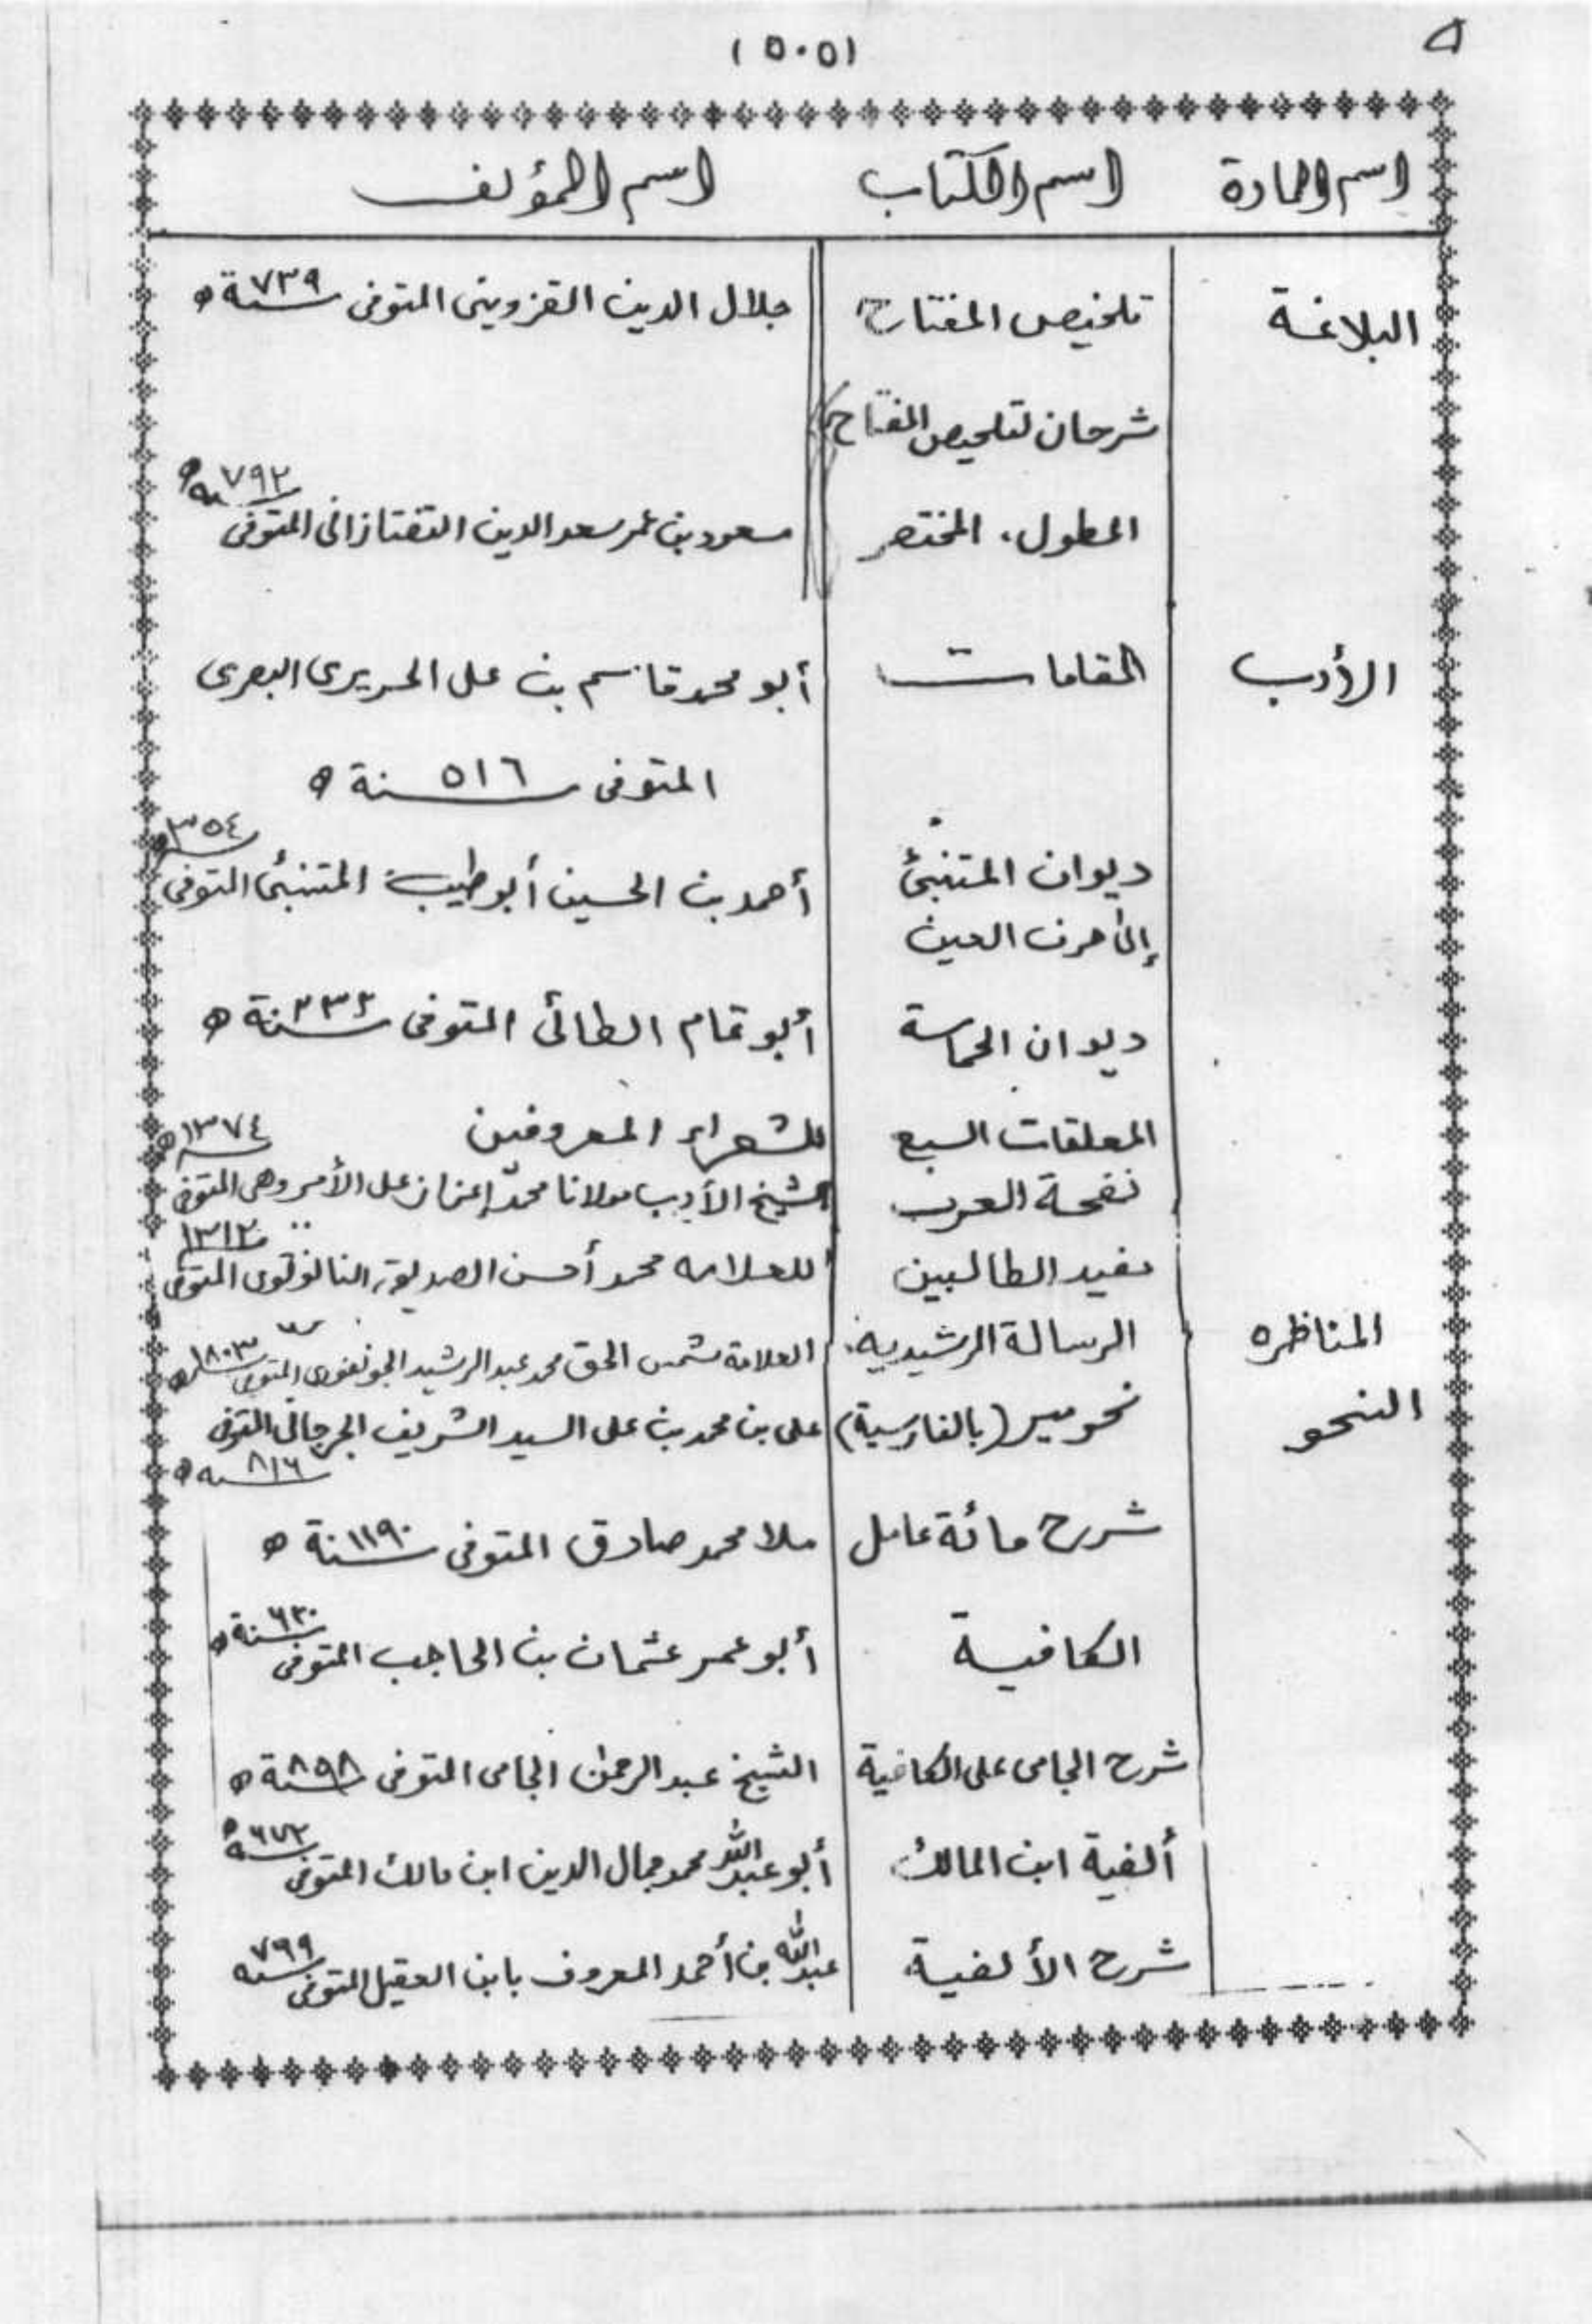 (٥٠٥)
اسم المادة اسم الكتاب اسم المؤلف
البلاغة تلخيص المفتاح جلال الدين القزويني المتوفى سنة ٧٣٩ ه
شرحان لتلخيص المفتاح
المطول، المختصر مسعود بن عمر سعد الدين التفتازانى المتوفى ٧٩٢ ه
الأدب المقامات أبو محمد قاسم بن على الحريرى البصرى
المتوفى سنة ٥١٦ ه
ديوان المتنبئ أحمد بن الحسين أبو طيب المتنبئ المتوفى ٣٥٤
إلى حرف العين
ديوان الحماسة أبو تمام الطائى المتوفى سنة ٢٣٢ ه
المعلقات السبع للشعراء المعروفين
نفحة العرب الشيخ الأديب مولانا محمد إعزاز على الأمروهى المتوفى ١٣٧٤ ه
مفيد الطالبين للعلامه محمد أحسن الصديقى النانوتوى المتوفى ١٣١٢
المناظره الرسالة الرشيديه العلامة شمس الحق محمد عبد الرشيد الجونفورى المتوفى
النحو نحومير (بالفارسية) على بن محمد بن على السيد الشريف الجرجانى المتوفى
٨١٦ ه
شرح مائة عامل ملا محمد صادق المتوفى سنة ١١٩٠ ه
الكافية أبو عمر عثمان بن الحاجب المتوفى سنة ٦٣٠ ه
شرح الجامى على الكافية الشيخ عبد الرحمن الجامى المتوفى سنة ٨٩٨ ه
ألفية ابن المالك أبو عبد الله محمد جمال الدين ابن مالك المتوفى ٦٧٢ ه
شرح الألفية عبد الله بن أحمد المعروف بابن العقيل المتوفى سنه ٧٩٩